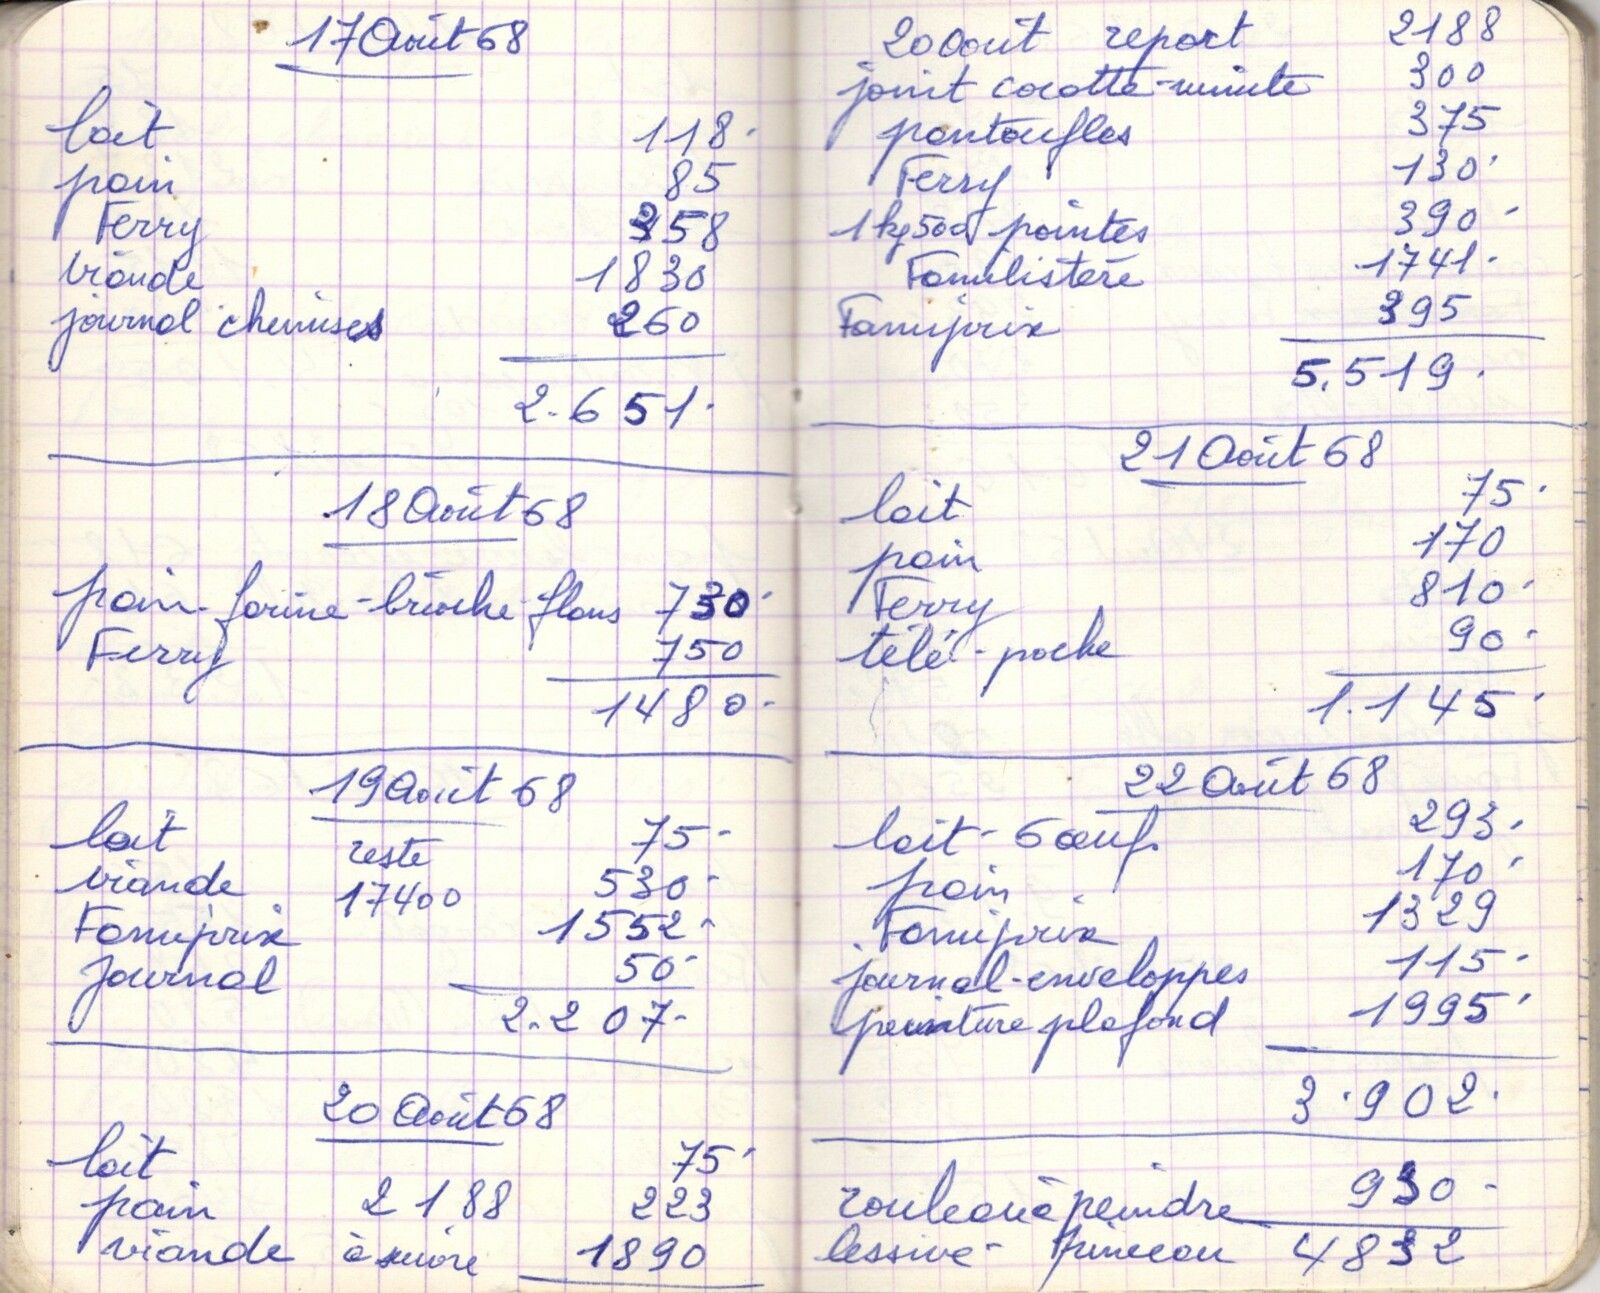 17 Août 68
lait 118.
pain 85
Ferry 358
viande 1830
journal chemises 260
2.651.
18 Août 68
pain-farine-brioche-flans 730.
Ferry 750
1480.
19 Août 68
lait reste 75.
viande 17400 530.
Famiprix 1552.
journal 50.
2.207.
20 Août 68
lait 75.
pain 2188 223
viande à suivre 1890
20 Août report 2188
joint cocotte-minute 300
pantoufles 375
Ferry 130.
1kg500 pointes 390.
Familistère 1741.
Famiprix 395
5.519.
21 Août 68
lait 75.
pain 170
Ferry 810.
télé-poche 90.
1.145.
22 Août 68
lait-6 œufs. 293.
pain 170.
Famiprix 1329
journal-enveloppes 115.
peinture plafond 1995.
3.902.
rouleau à peindre 930.
lessive- Pinceau 4832